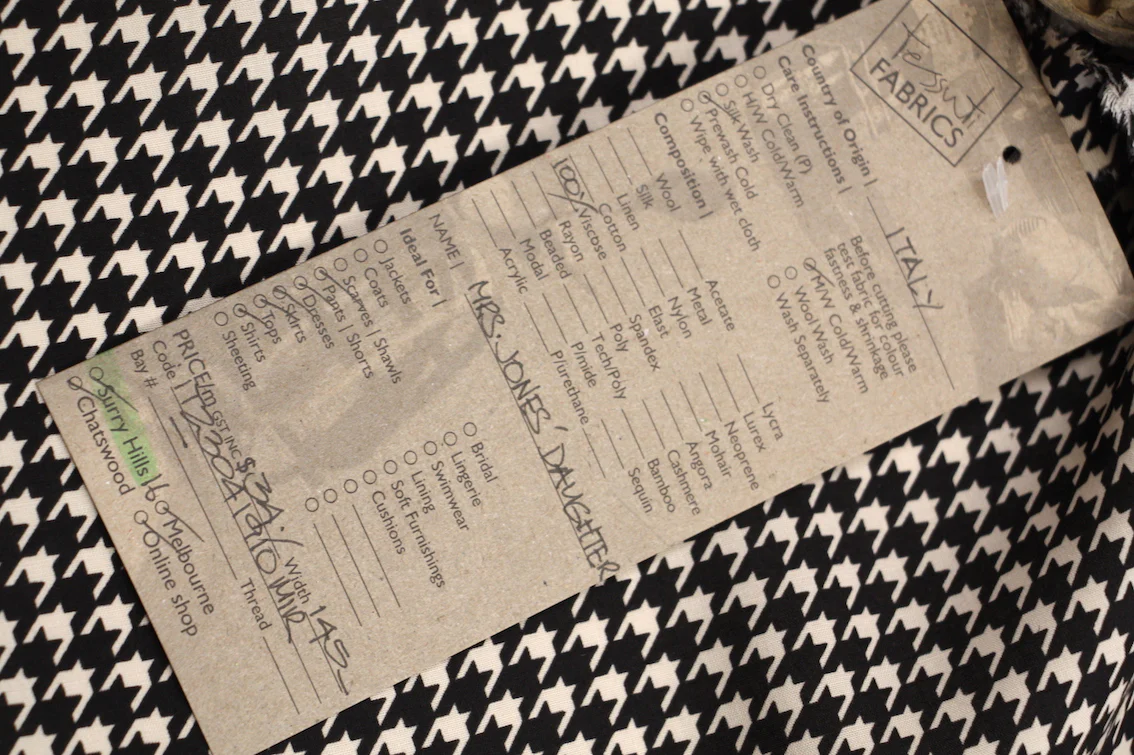 tessuti
FABRICS
Country of Origin | ITALY
Care Instructions |
Before cutting please
test fabric for colour
fastness & shrinkage
Dry Clean (P)
H/W Cold/Warm
Silk Wash
Prewash Cold
Wipe with wet cloth
M/W Cold/Warm
Wool Wash
Wash Separately
Composition |
Wool
Silk
Linen
Cotton
100% Viscose
Rayon
Beaded
Modal
Acrylic
Acetate
Metal
Nylon
Elast
Spandex
Poly
Tech/Poly
P/mide
P/urethane
Lycra
Lurex
Neoprene
Mohair
Angora
Cashmere
Bamboo
Sequin
NAME | MRS. JONES' DAUGHTER
Ideal For |
Jackets
Coats
Scarves | Shawls
Pants | Shorts
Dresses
Skirts
Tops
Shirts
Sheeting
Bridal
Lingerie
Swimwear
Lining
Soft Furnishings
Cushions
PRICE/m GST INC $39. Width 145
Code
Bay # Thread
Surry Hills Melbourne
Chatswood Online shop